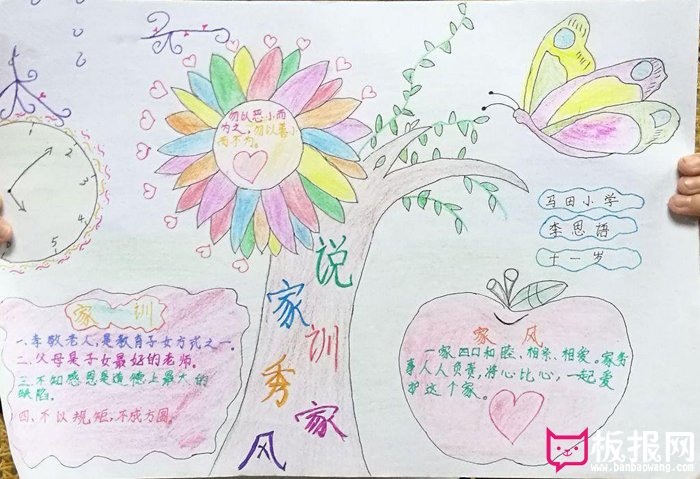 勿以恶小而
为之，勿以善小
而不为。
1
2
3
4
5
马田小学
李恩语
十一岁
说
家
训
秀
家
风
家 训
一、孝敬老人，是教育子女方式之一。
二、父母是子女最好的老师。
三、不知感恩是道德上最大的
缺陷。
四、不以规矩，不成方圆。
家 风
一家四口和睦、相亲、相爱。家务
事人人负责，将心比心，一起爱
护这个家。
板报网
www.banbaowang.com